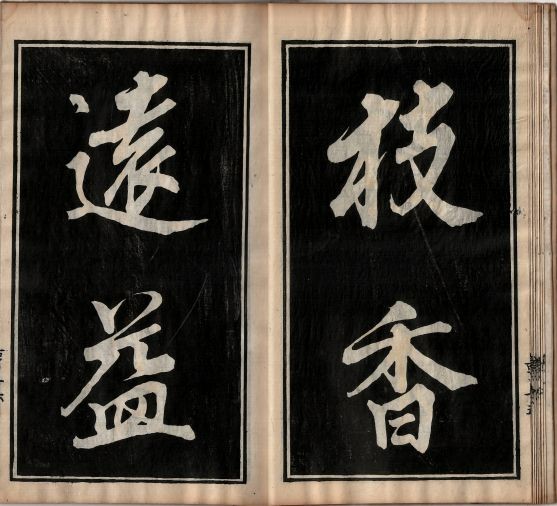 枝香
遠益